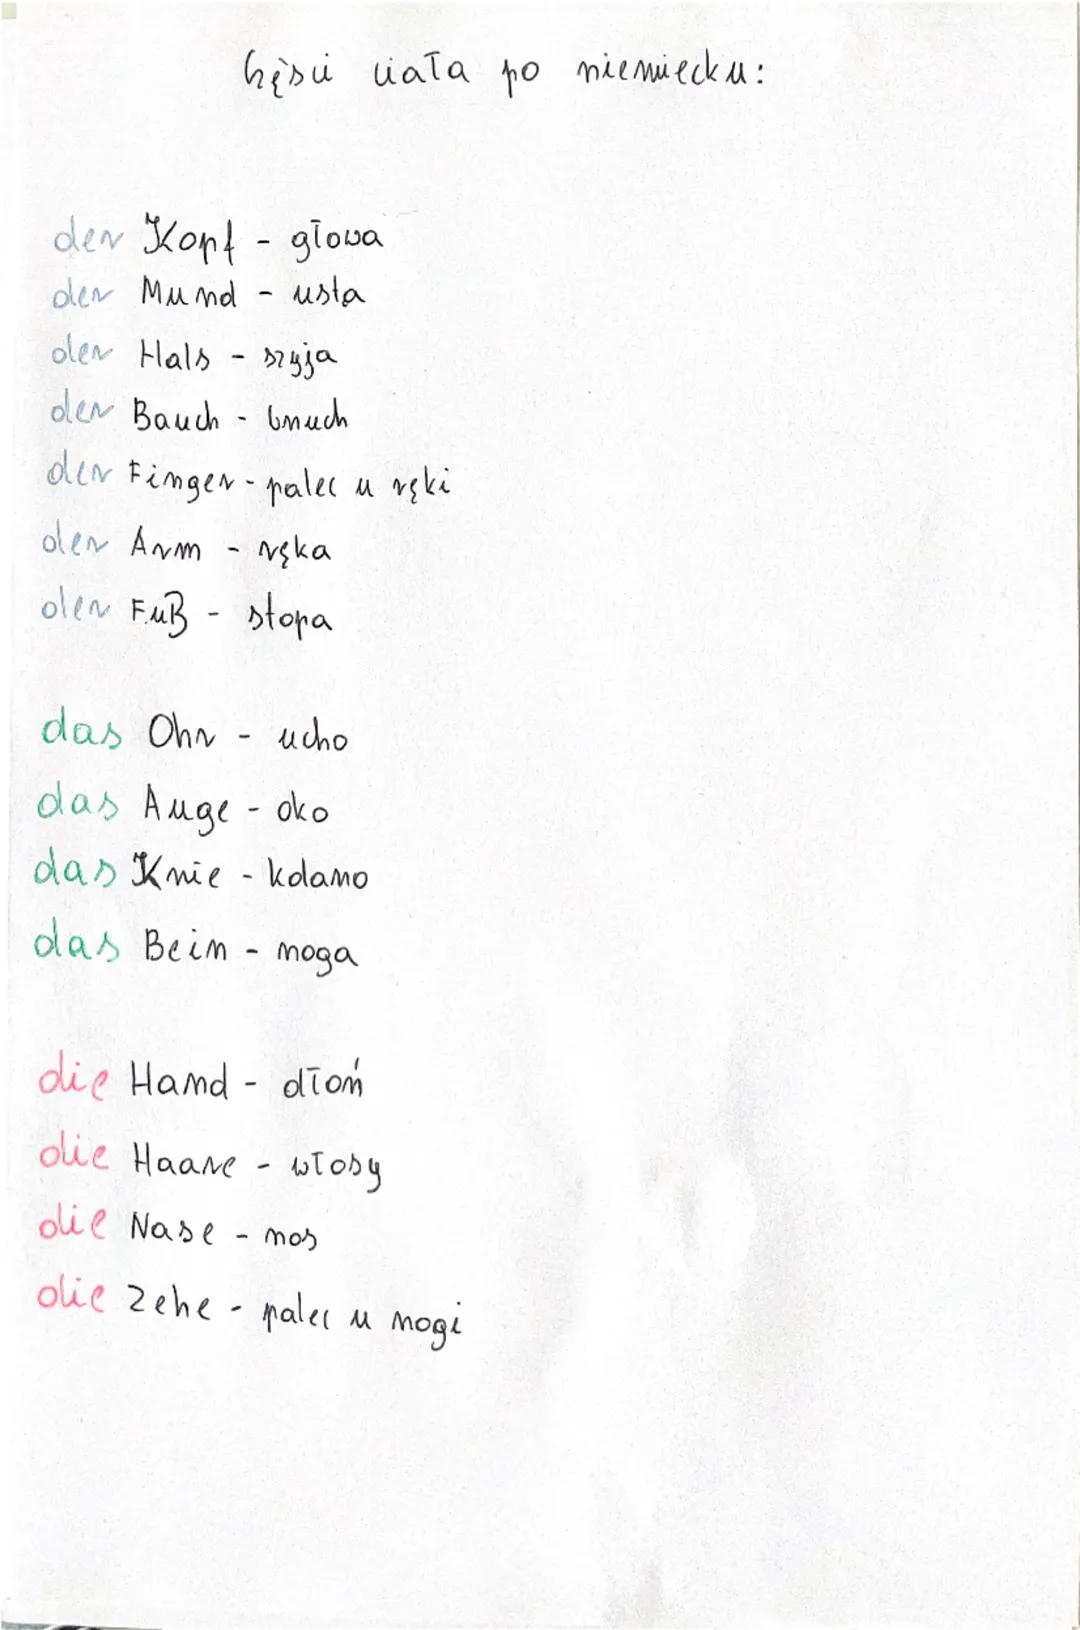 Części ciała po niemiecku:
der Kopf - głowa
der Mund - usta
der Hals - szyja
der Bauch - brzuch
der Finger - palec u ręki
der Arm - ręka
der Fuß - stopa
das Ohr - ucho
das Auge - oko
das Knie - kolano
das Bein - noga
die Hand - dłoń
die Haare - włosy
die Nase - nos
die Zehe - palec u nogi